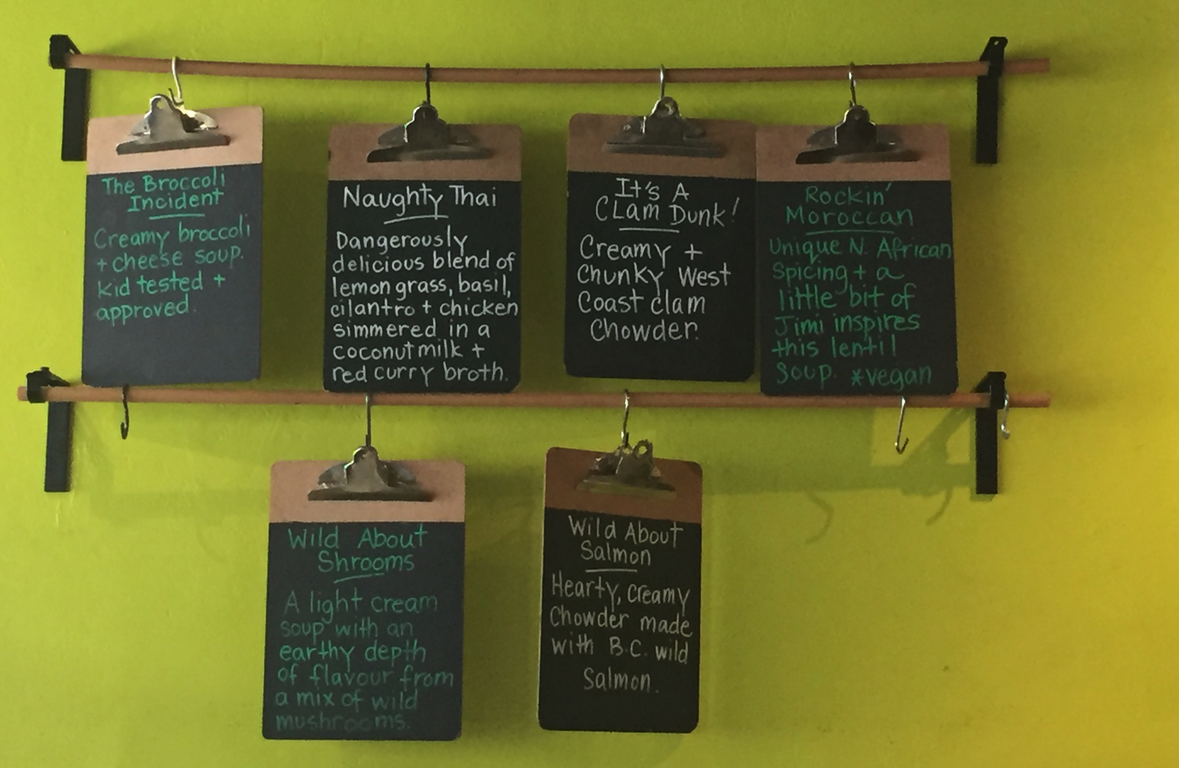 The Broccoli
Incident
Creamy broccoli
+ cheese soup.
Kid tested +
approved.
Naughty Thai
Dangerously
delicious blend of
lemon grass, basil,
cilantro + chicken
simmered in a
coconut milk +
red curry broth.
It's A
CLam Dunk!
Creamy +
Chunky West
Coast clam
Chowder.
Rockin'
Moroccan
Unique N. African
Spicing + a
little bit of
Jimi inspires
this lentil
Soup. *vegan
Wild About
Shrooms
A light cream
soup with an
earthy depth
of flavour from
a mix of wild
mushrooms.
Wild About
Salmon
Hearty, creamy
Chowder made
with B.C. wild
Salmon.